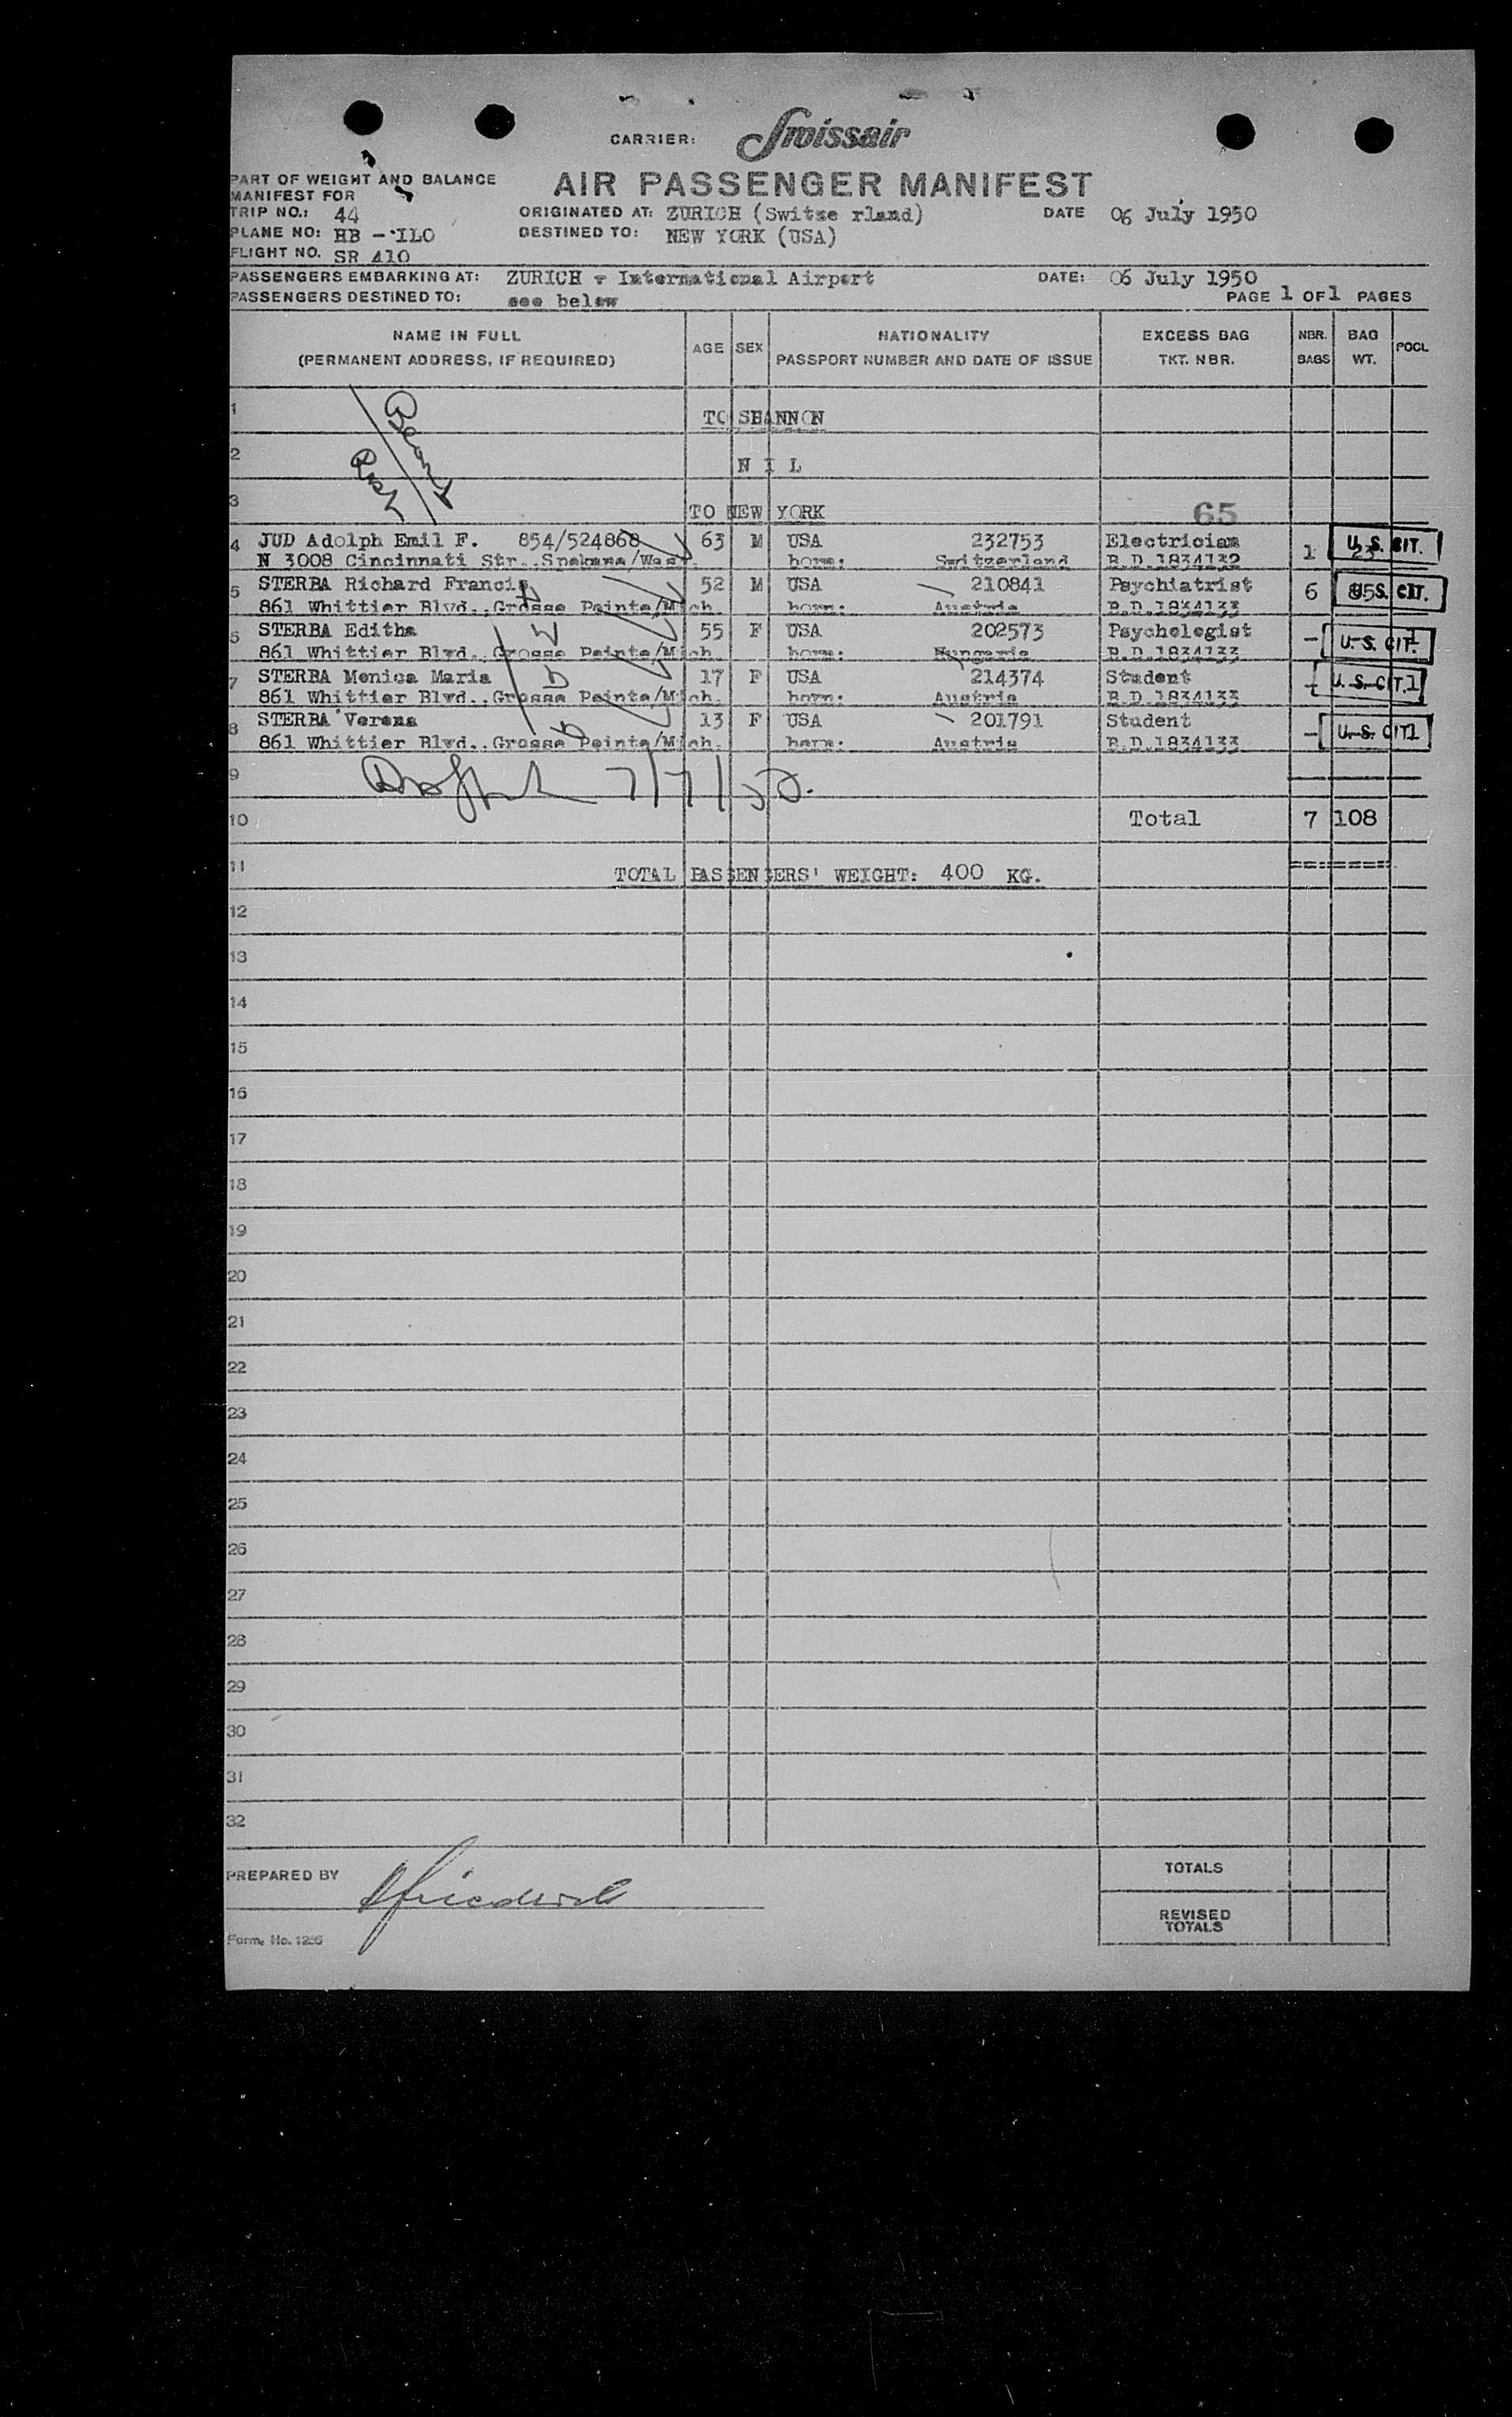 CARRIER: Swissair
PART OF WEIGHT AND BALANCE
MANIFEST FOR
AIR PASSENGER MANIFEST
TRIP NO.: 44 ORIGINATED AT: ZURICH (Switze rland) DATE 06 July 1950
PLANE NO: HB - ILO DESTINED TO: NEW YORK (USA)
FLIGHT NO. SR 410
PASSENGERS EMBARKING AT: ZURICH - International Airport DATE: 06 July 1950
PASSENGERS DESTINED TO: see below PAGE 1 OF 1 PAGES
NAME IN FULL AGE SEX NATIONALITY EXCESS BAG NBR. BAG POCL
(PERMANENT ADDRESS, IF REQUIRED) PASSPORT NUMBER AND DATE OF ISSUE TKT. NBR. BAGS WT.
1 TO SHANNON
2 N I L
3 TO NEW YORK 65
4 JUD Adolph Emil F. 854/524868 63 M USA 232753 Electrician 1 U.S. CIT.
N 3008 Cincinnati Str., Spokane/Wash. born: Switzerland B.D.1834132
5 STERBA Richard Francis 52 M USA 210841 Psychiatrist 6 85 U.S. CIT.
861 Whittier Blvd., Grosse Pointe/Mich. born: Austria B.D.1834133
6 STERBA Editha 55 F USA 202573 Psychologist - U.S. CIT.
861 Whittier Blvd., Grosse Pointe/Mich. born: Hungaria B.D.1834133
7 STERBA Monica Maria 17 F USA 214374 Student - U.S. CIT.
861 Whittier Blvd., Grosse Pointe/Mich. born: Austria B.D.1834133
8 STERBA Verena 13 F USA 201791 Student - U.S. CIT.
861 Whittier Blvd., Grosse Pointe/Mich. born: Austria B.D.1834133
9 7/7/50.
10 Total 7 108
11 TOTAL PASSENGERS' WEIGHT: 400 KG.
12
13
14
15
16
17
18
19
20
21
22
23
24
25
26
27
28
29
30
31
32
PREPARED BY TOTALS
REVISED
TOTALS
Form. No. 1256